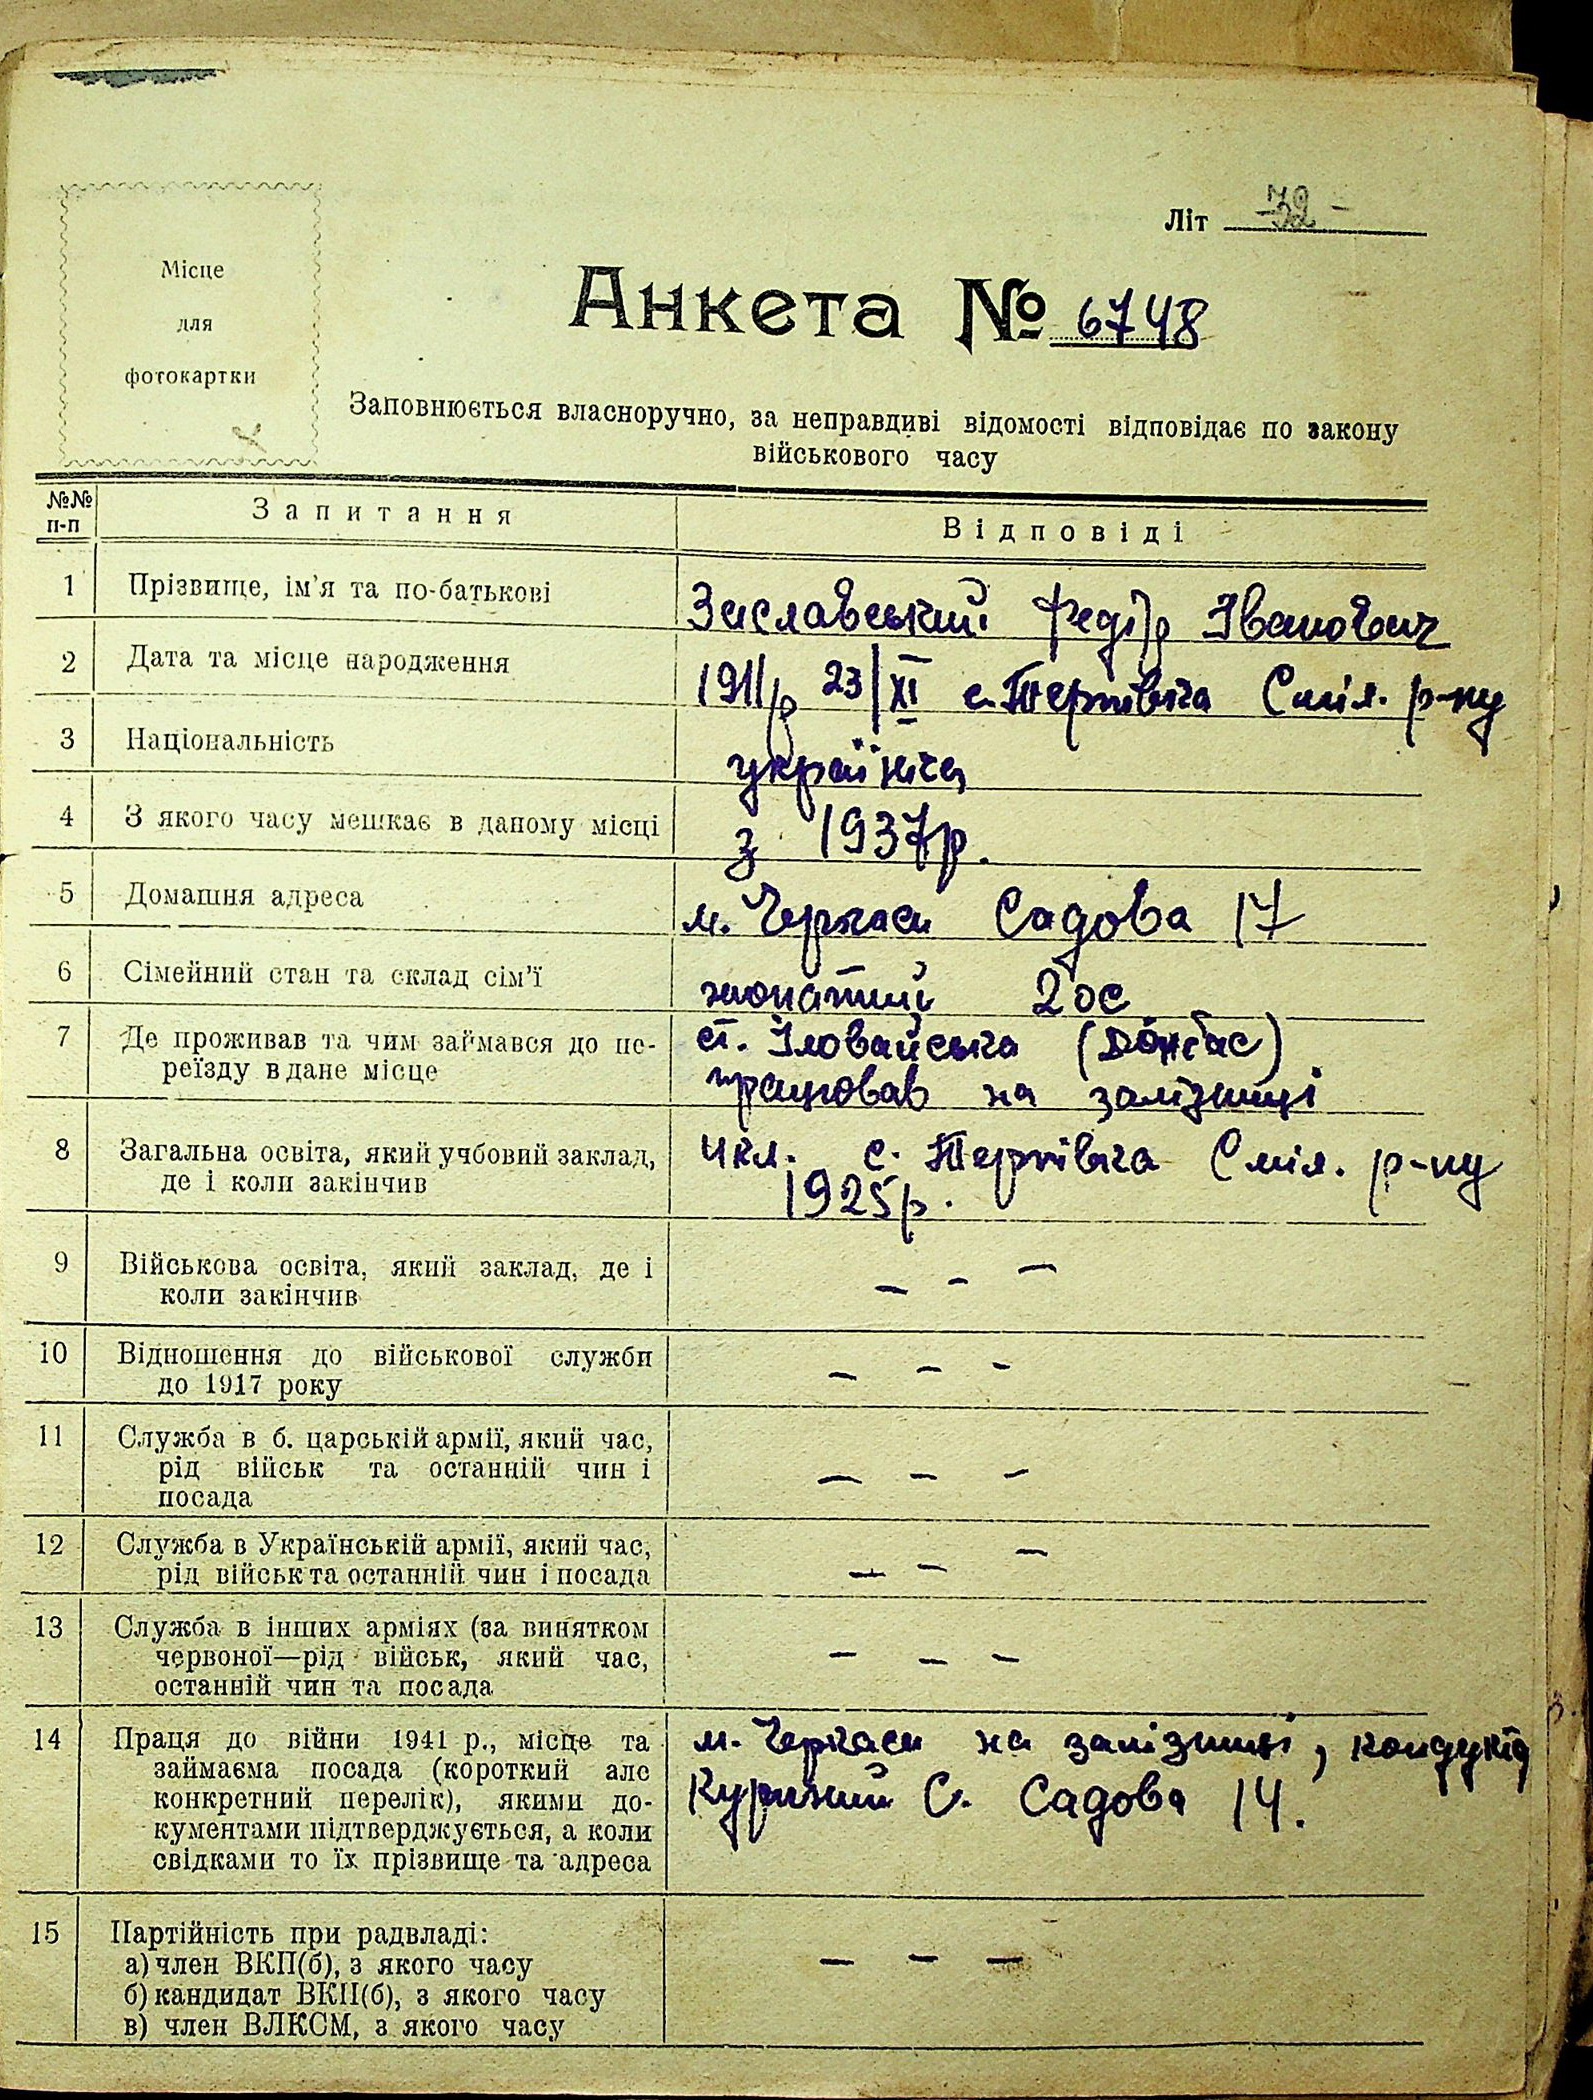 Літ -32-
Місце
для
фотокартки
Анкета № 6748
Заповнюється власноручно, за неправдиві відомості відповідає по закону
військового часу
№№
п-п
Запитання
Відповіді
1 Прізвище, ім'я та по-батькові
Заславський Федір Іванович
2 Дата та місце народження
1911р 23/XI с. Тернівка Сміл. р-ну
3 Національність
українец
4 З якого часу мешкає в даному місці
з 1937р.
5 Домашня адреса
м. Черкаси Садова 17
6 Сімейний стан та склад сім'ї
жонатий 2 ос
7 Де проживав та чим займався до пе-
реїзду в дане місце
ст. Іловайська (Донбас)
працював на залізниці
8 Загальна освіта, який учбовий заклад,
де і коли закінчив
4 кл. с. Тернівка Сміл. р-ну
1925р.
9 Військова освіта, який заклад, де і
коли закінчив
— - —
10 Відношення до військової служби
до 1917 року
— - -
11 Служба в б. царській армії, який час,
рід військ та останній чин і
посада
— - -
12 Служба в Українській армії, який час,
рід військ та останній чин і посада
— - —
13 Служба в інших арміях (за винятком
червоної—рід військ, який час,
останній чин та посада
- - -
14 Праця до війни 1941 р., місце та
займаєма посада (короткий але
конкретний перелік), якими до-
кументами підтверджується, а коли
свідками то їх прізвище та адреса
м. Черкаси на залізниці,
С. Садова 14.
15 Партійність при радвладі:
а) член ВКП(б), з якого часу
б) кандидат ВКП(б), з якого часу
в) член ВЛКСМ, з якого часу
— - —